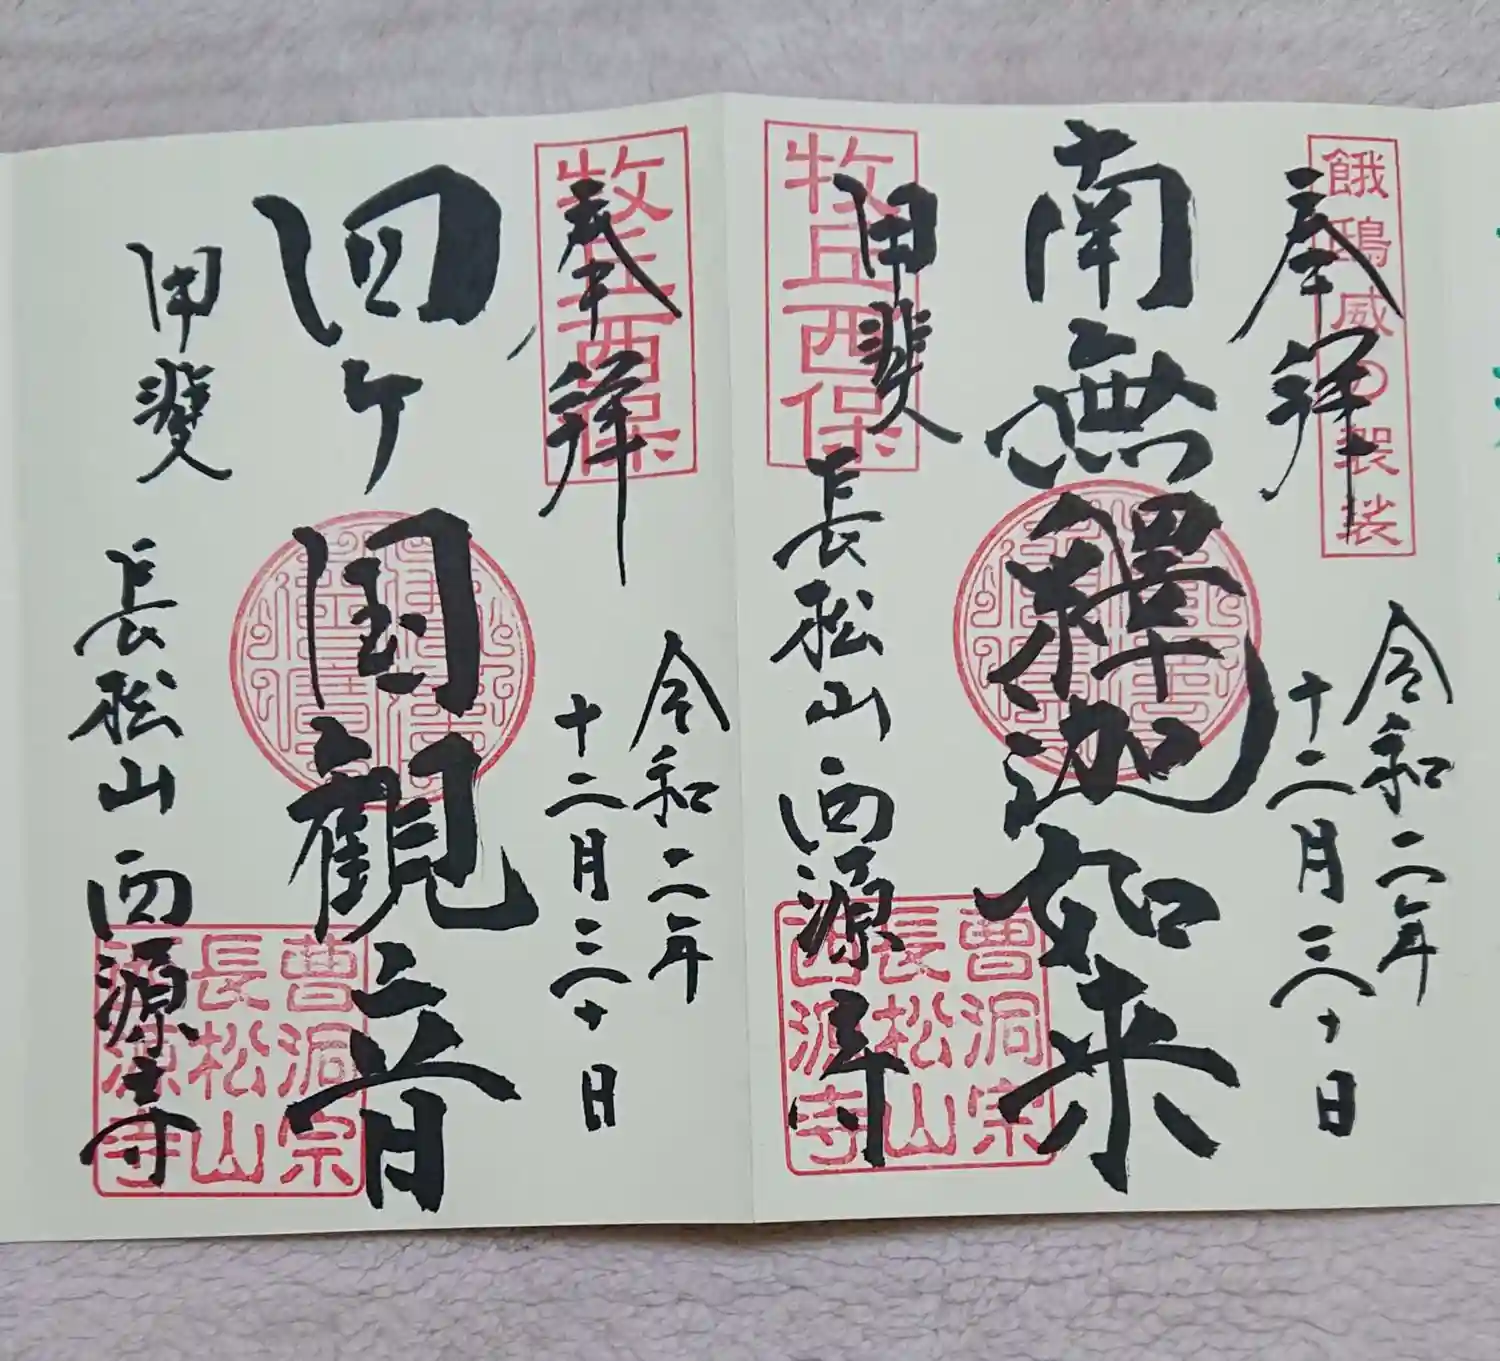 奉拝
餓鴟威の袈裟
令和二年
十二月三十日
南無釋迦如来
牧丘西保
甲斐
長松山 西源寺
曹洞宗
長松山
西源寺
奉拝
牧丘西保
令和二年
十二月三十日
四ヶ国観音
甲斐
長松山 西源寺
曹洞宗
長松山
西源寺